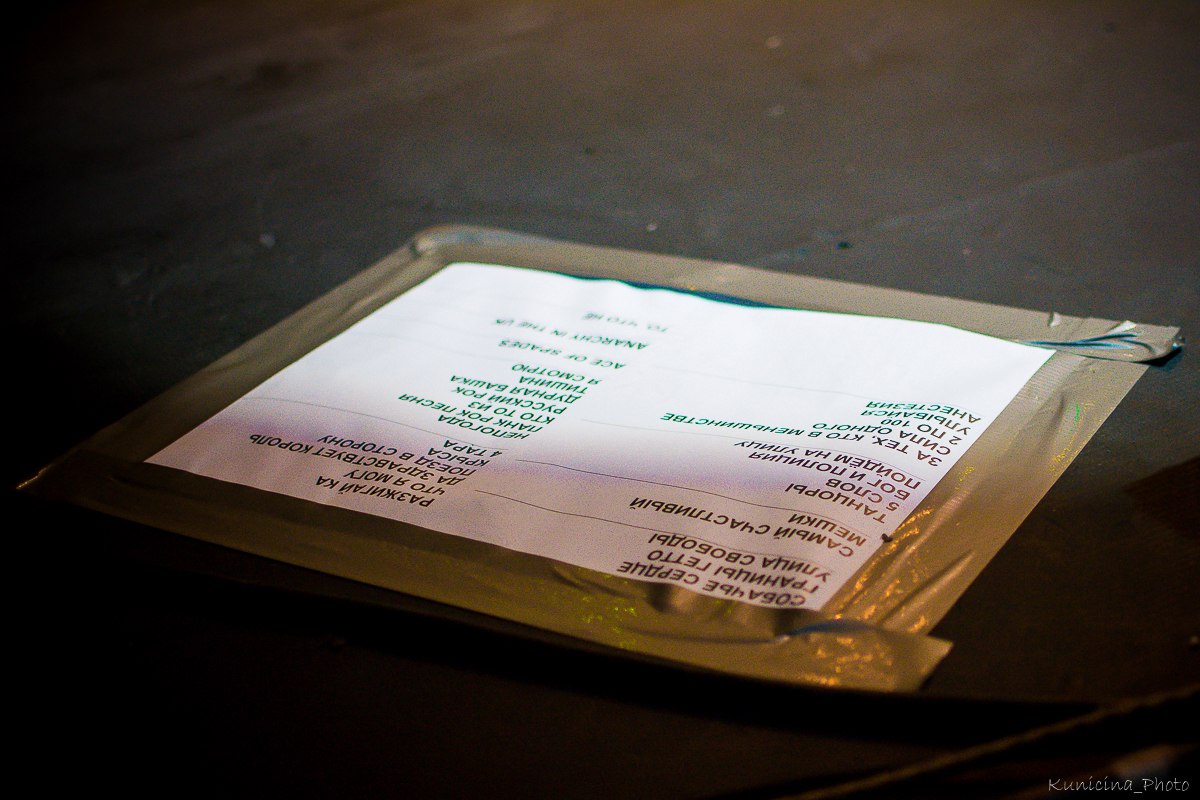 СОБАЧЬЕ СЕРДЦЕ
ГРАНИЦЫ ГЕТТО
УЛИЦА СВОБОДЫ
САМЫЙ СЧАСТЛИВЫЙ
МЕШКИ
ТАНЦОРЫ
5 СЛОВ
БОГ И ПОЛИЦИЯ
ПОЙДЁМ НА УЛИЦУ
ЗА ТЕХ, КТО В МЕНЬШИНСТВЕ
СИЛА ОДНОГО
2 ПО 100
УЛЫБАЙСЯ
АНЕСТЕЗИЯ
РАЗЖИГАЙ КА
ЧТО Я МОГУ
ДА ЗДРАВСТВУЕТ КОРОЛЬ
ПОЕЗД В СТОРОНУ
КРЫСА
4 ТАРА
НЕПОГОДА
ПАНК РОК ПЕСНЯ
КТО ТО ИЗ
РУССКИЙ РОК
ДУРНАЯ БАШКА
ТИШИНА
Я СМОТРЮ
ACE OF SPADES
ANARCHY IN THE UK
ТО, ЧТО НЕ
Kunicina_Photo